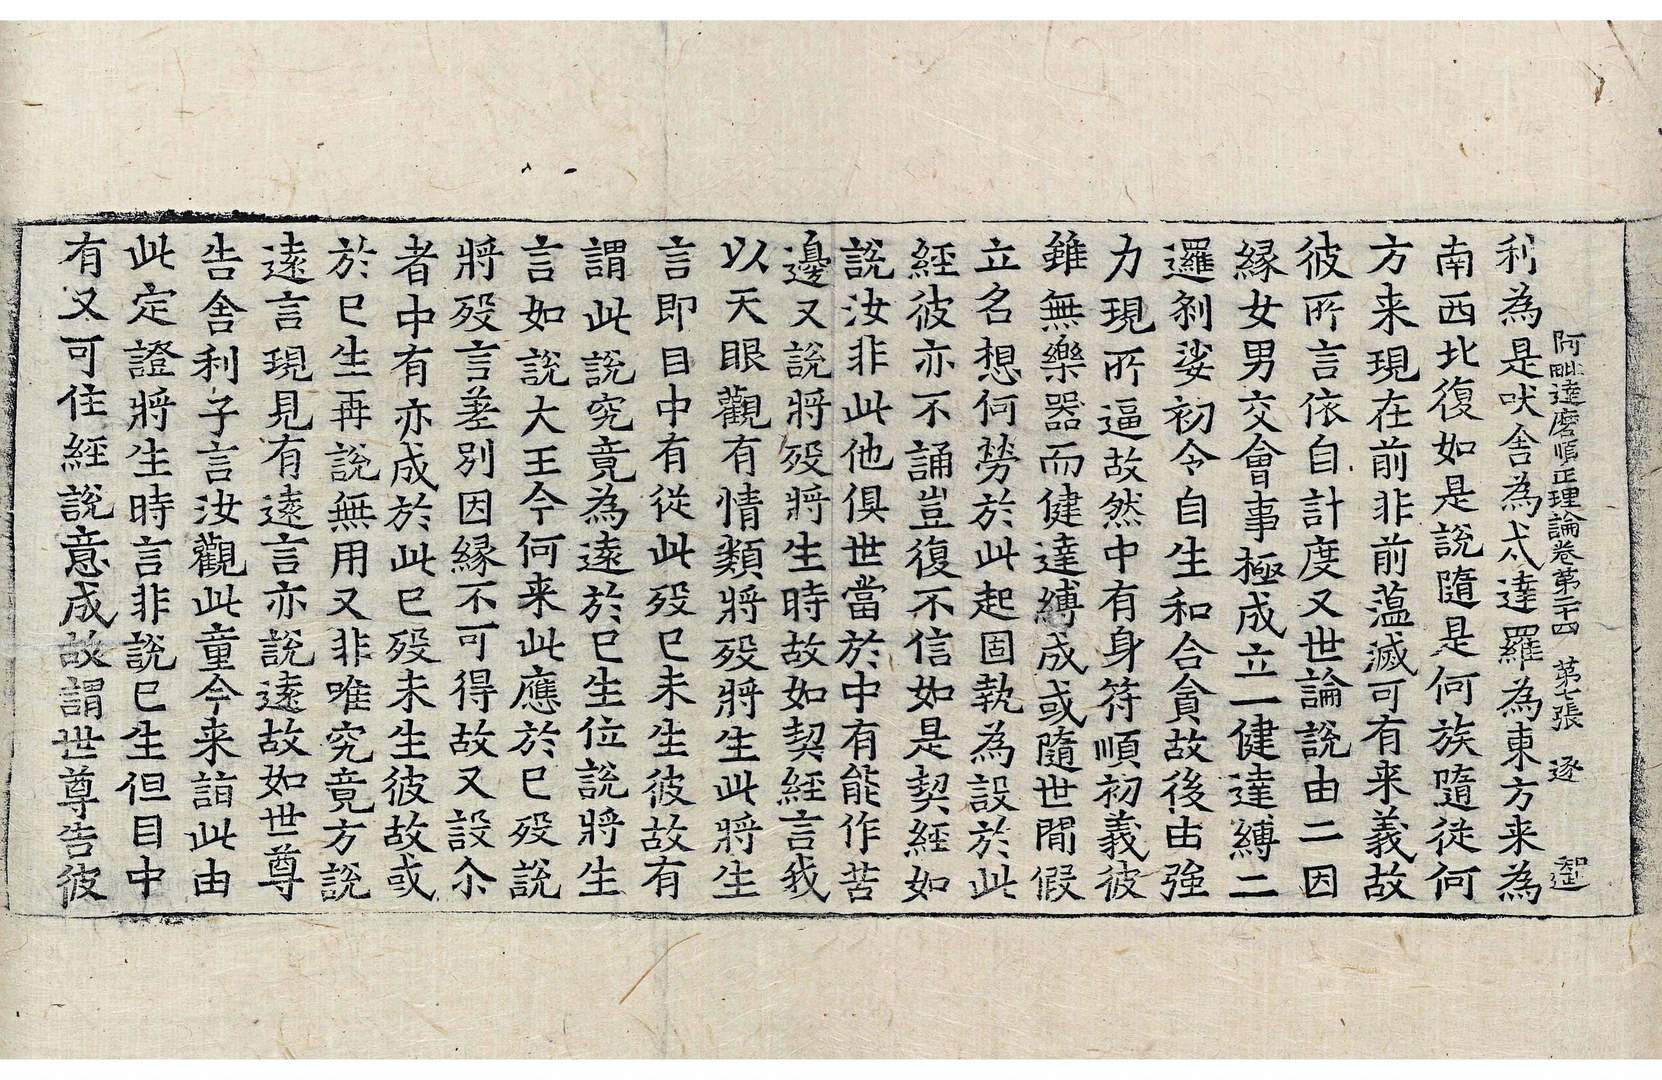 阿毗達磨順正理論卷第二十四　第七張　逐　智逹
利為是吠舍為戍達羅為東方来為
南西北復如是說隨是何族隨從何
方来現在前非前薀滅可有来義故
彼所言依自計度又世論說由二因
緣女男交會事極成立一健達縛二
邏剎娑初令自生和合貪故後由強
力現所逼故然中有身符順初義彼
雖無樂器而健達縛成或隨世間假
立名想何勞於此起固執為設於此
經彼亦不誦豈復不信如是契經如
說汝非此他俱世當於中有能作苦
邊又說將歿將生時故如契經言我
以天眼觀有情類將歿將生此將生
言即目中有從此歿已未生彼故有
謂此說究竟為遠於已生位說將生
言如說大王今何来此應於已歿說
將歿言差別因緣不可得故又設尒
者中有亦成於此已歿未生彼故或
於已生再說無用又非唯究竟方說
遠言現見有遠言亦說遠故如世尊
告舍利子言汝觀此童今来詣此由
此定證將生時言非說已生但目中
有又可住經說意成故謂世尊告彼